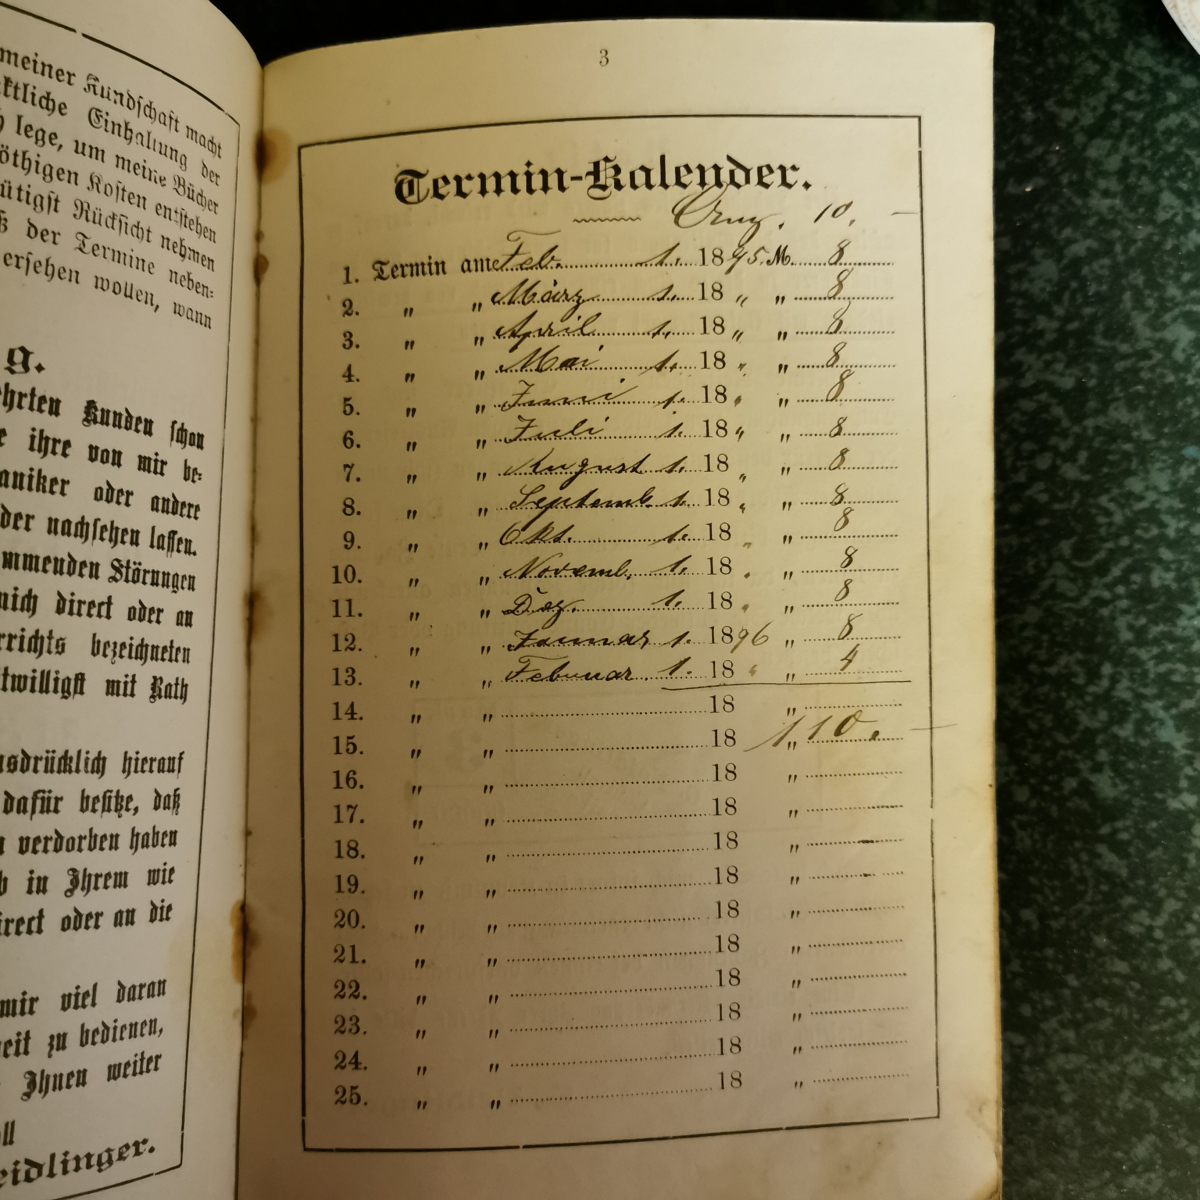 meiner Kundschaft macht
ktliche Einhaltung der
h lege, um meine Bücher
öthigen Kosten entstehen
ütigst Rücksicht nehmen
ß der Termine neben-
ersehen wollen, wann
g.
hrten Kunden schon
e ihre von mir be-
aniker oder andere
der nachsehen lassen.
mmenden Störungen
mich direct oder an
rrichts bezeichneten
twilligst mit Rath
usdrücklich hierauf
dafür besitze, daß
n verdorben haben
b in Ihrem wie
irect oder an die
mir viel daran
eit zu bedienen,
Ihnen weiter
ll
eidlinger.
3
Termin-Kalender.
10. —
1. Termin am Feb. 1. 1895 M. 8
2. „ „ März 1. 18 „ „ 8
3. „ „ April 1. 18 „ „ 8
4. „ „ Mai 1. 18 „ „ 8
5. „ „ Juni 1. 18 „ „ 8
6. „ „ Juli 1. 18 „ „ 8
7. „ „ August 1. 18 „ „ 8
8. „ „ Septemb. 1. 18 „ „ 8
9. „ „ Okt. 1. 18 „ „ 8
10. „ „ Novemb. 1. 18 „ „ 8
11. „ „ Dez. 1. 18 „ „ 8
12. „ „ Januar 1. 1896 „ 8
13. „ „ Februar 1. 18 „ „ 4
14. „ „ 18 „
15. „ „ 18 „ 110. —
16. „ „ 18 „
17. „ „ 18 „
18. „ „ 18 „
19. „ „ 18 „
20. „ „ 18 „
21. „ „ 18 „
22. „ „ 18 „
23. „ „ 18 „
24. „ „ 18 „
25. „ „ 18 „